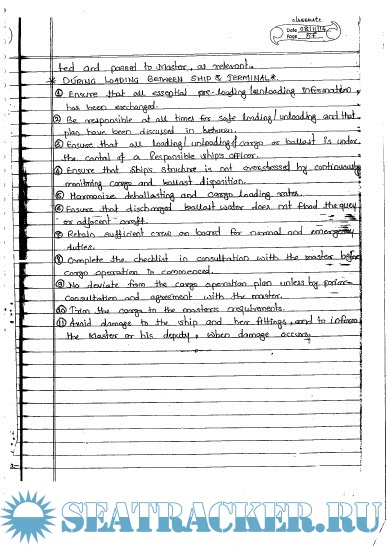 classmate
Date 08/11/14
Page
ted and passed to Master, as relevant.
* DURING LOADING BETWEEN SHIP & TERMINAL *
① Ensure that all essential pre-loading/unloading information
has been exchanged.
② Be responsible at all times for safe loading/unloading and that
plan have been discussed in between.
③ Ensure that all loading/unloading of cargo or ballast is under
the control of a responsible ship's officer.
④ Ensure that ship's structure is not overstressed by continuously
monitoring cargo and ballast disposition.
⑤ Harmonize deballasting and cargo loading rates.
⑥ Ensure that discharged ballast water does not flood the quay
or adjacent craft.
⑦ Retain sufficient crew on board for normal and emergency
duties.
⑧ Complete the checklist in consultation with the master before
cargo operation is commenced.
⑨ No deviate from the cargo operation plan unless by prior
consultation and agreement with the master.
⑩ Trim the cargo to the master's requirements.
⑪ Avoid damage to the ship and her fittings, and to inform
the Master or his deputy, when damage occurs.
SEATRACKER.RU